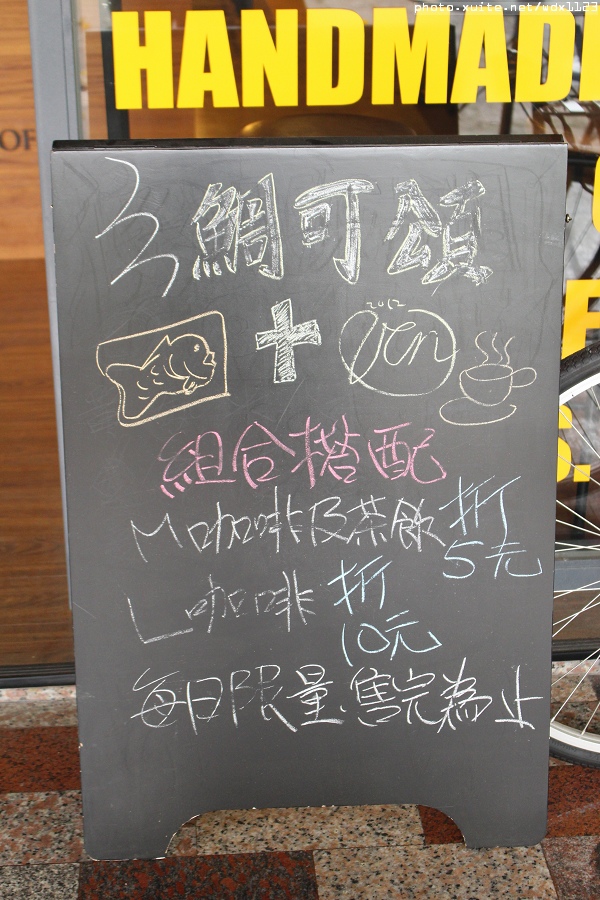 photo.xuite.net/vdx1123
HANDMADE
OF
鯛可頌
+
2012
Ven
組合搭配
M咖啡及茶飲 折
5元
L咖啡 折
10元
每日限量.售完為止